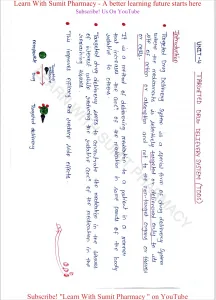 Learn With Sumit Pharmacy - A better learning future starts here
Subscribe! Us On YouTube
UNIT-4
TARGETED DRUG DELIVERY SYSTEM (TDDS)
Introduction
Targeted Drug Delivery System is a special form of drug delivery system
where the
is selectively targeted
to its
site of action or absorption and not to the non-target
or tissues
or
It is a method of delivering medication to a patient in a manner
that increases the
of the medication in some parts of the body
relative to others.
Targeted drug delivery seeks to concentrate the medication in the tissues
of interest while reducing the relative
of the medication in the
remaining tissues.
This improves efficacy and reduce side effects.
Targeted delivery
SUMIT PHARMACY
Subscribe! "Learn With Sumit Pharmacy " on YouTube